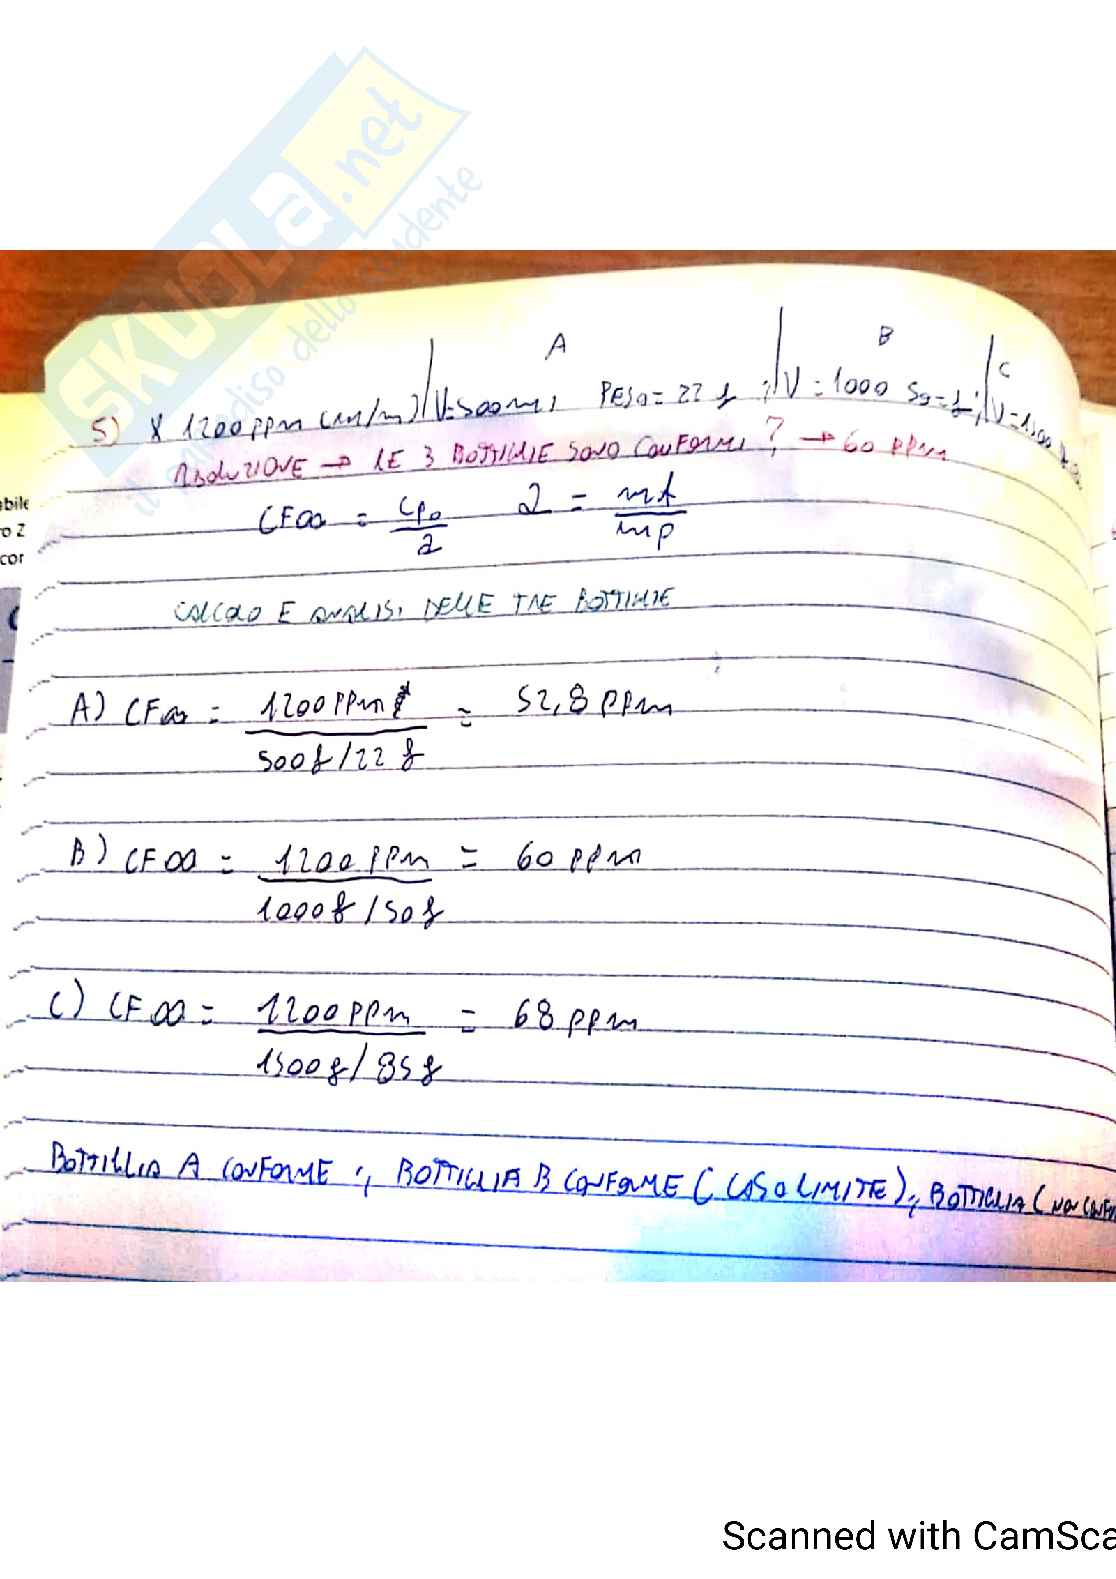 SKUOLA.net
il paradiso dello studente
A B C
5) X 1200 ppm (m/m) V=500ml PESO= 22 g ; V = 1000 50=g ; V=1500
RISOLUZIONE → LE 3 BOTTIGLIE SONO CONFORMI? → 60 ppm
CF∞ = Cp₀/2 2 = mf/mp
CALCOLO E ANALISI DELLE TRE BOTTIGLIE
A) CF∞ = 1200 ppm = 52,8 ppm
500g/22 g
B) CF∞ = 1200 ppm = 60 ppm
1000g/50g
C) CF∞ = 1200 ppm = 68 ppm
1500g/85g
BOTTIGLIA A CONFORME ; BOTTIGLIA B CONFORME (CASO LIMITE); BOTTIGLIA C NON
abile
ro 2
cor
Scanned with CamSca